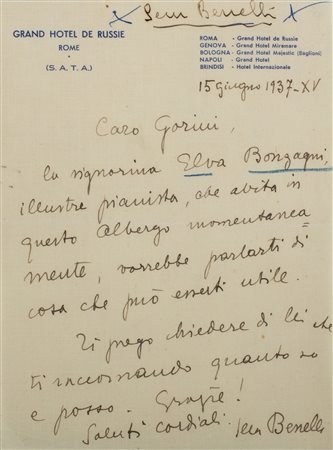 Sem Benelli
GRAND HOTEL DE RUSSIE
ROME
(S. A. T. A.)
ROMA - Grand Hotel de Russie
GENOVA - Grand Hotel Miramare
BOLOGNA - Grand Hotel Majestic (Baglioni)
NAPOLI - Grand Hotel
BRINDISI - Hotel Internazionale
15 giugno 1937-XV
Caro Gorini,
la signorina Elva Bonzagni,
illustre pianista, che abita in
questo Albergo momentanea
mente, vorrebbe parlarti di
cosa che può esserti utile.
Ti prego chiedere di lei che
ti raccomando quanto so
e posso. Grazie!
Saluti cordiali. Sem Benelli